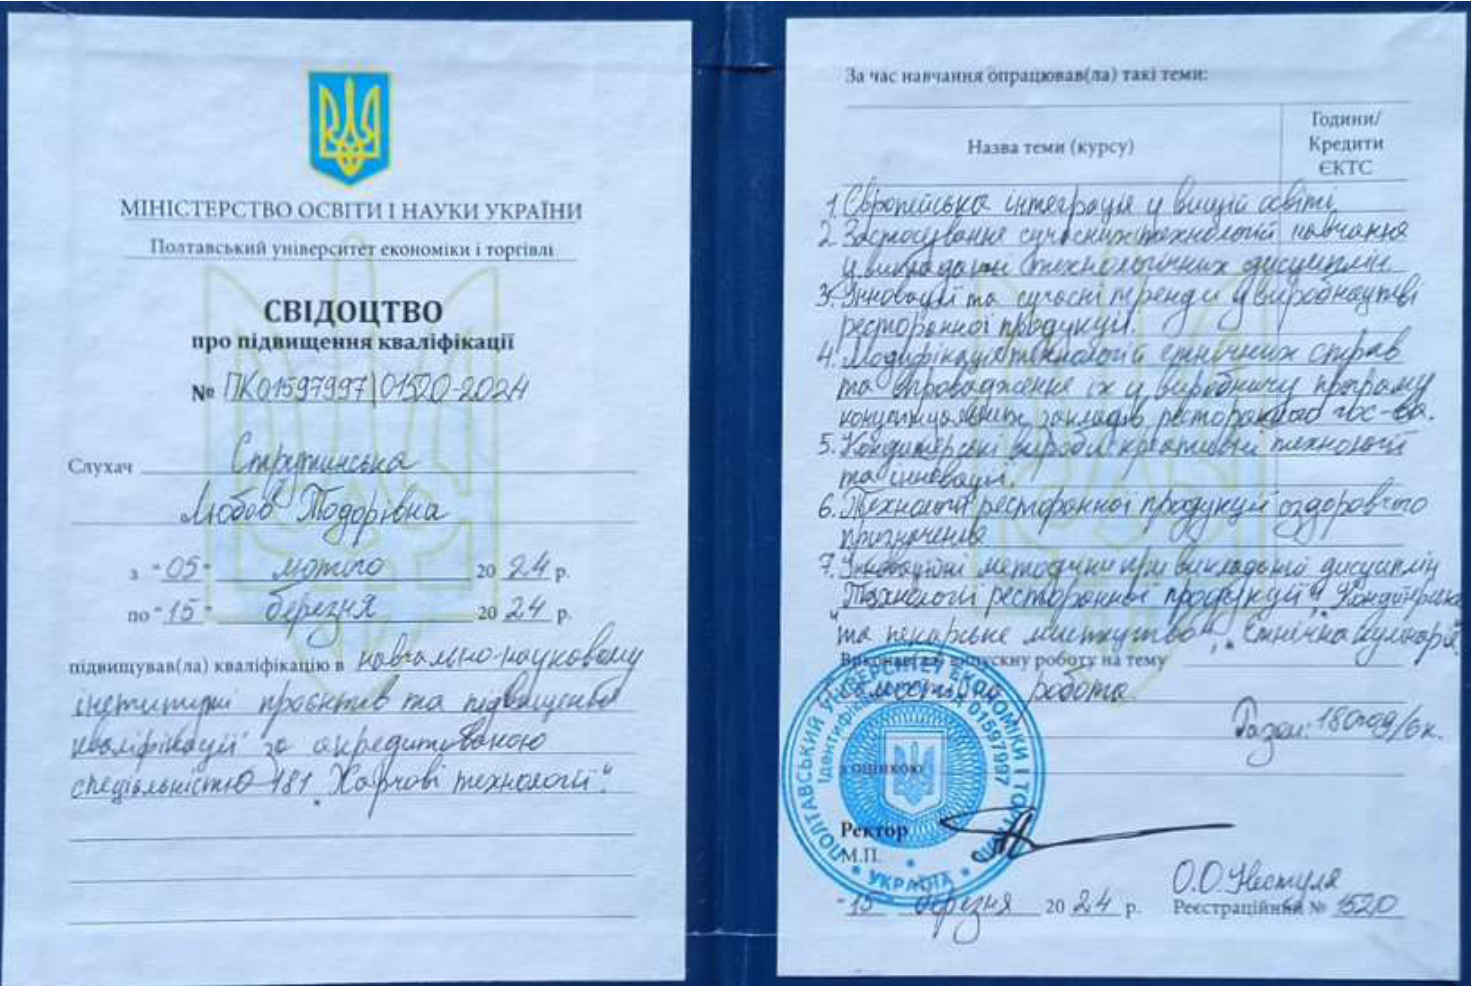 МІНІСТЕРСТВО ОСВІТИ І НАУКИ УКРАЇНИ
Полтавський університет економіки і торгівлі
СВІДОЦТВО
про підвищення кваліфікації
№ ПК01597997/01520-2024
Слухач
Любов Тодорівна
з "05" лютого 2024 р.
по "15" березня 2024 р.
підвищував(ла) кваліфікацію в навчально-науковому
інституті проєктів та підвищення
кваліфікації за акредитованою
спеціальністю 181 „Харчові технології“
За час навчання опрацював(ла) такі теми:
Назва теми (курсу)
Години/
Кредити
ЄКТС
1. Європейська інтеграція у вищій освіті
2. Застосування сучасних технологій навчання
у викладанні технологічних дисциплін.
3. Інновації та сучасні тренди у виробництві
ресторанної продукції.
4. Модифікація технологій етнічних страв
та впровадження їх у виробничу програму
концептуальних закладів ресторанного гос-ва.
5. Кондитерські вироби: креативні технології
та інновації.
6. Технології ресторанної продукції оздоровчого
призначення
7. Інноваційні методики при викладанні дисциплін
„Технології ресторанної продукції“, „Кондитерське
та пекарське мистецтво“, „Етнічна кулінарія“.
Виконав(ла) випускну роботу на тему
робота
Разом: 180год/6к.
з оцінкою
Ректор
М.П.
О.О. Нестуля
"15" березня 2024 р.
Реєстраційний № 1520
ПОЛТАВСЬКИЙ УНІВЕРСИТЕТ ЕКОНОМІКИ І ТОРГІВЛІ
01597997
УКРАЇНА